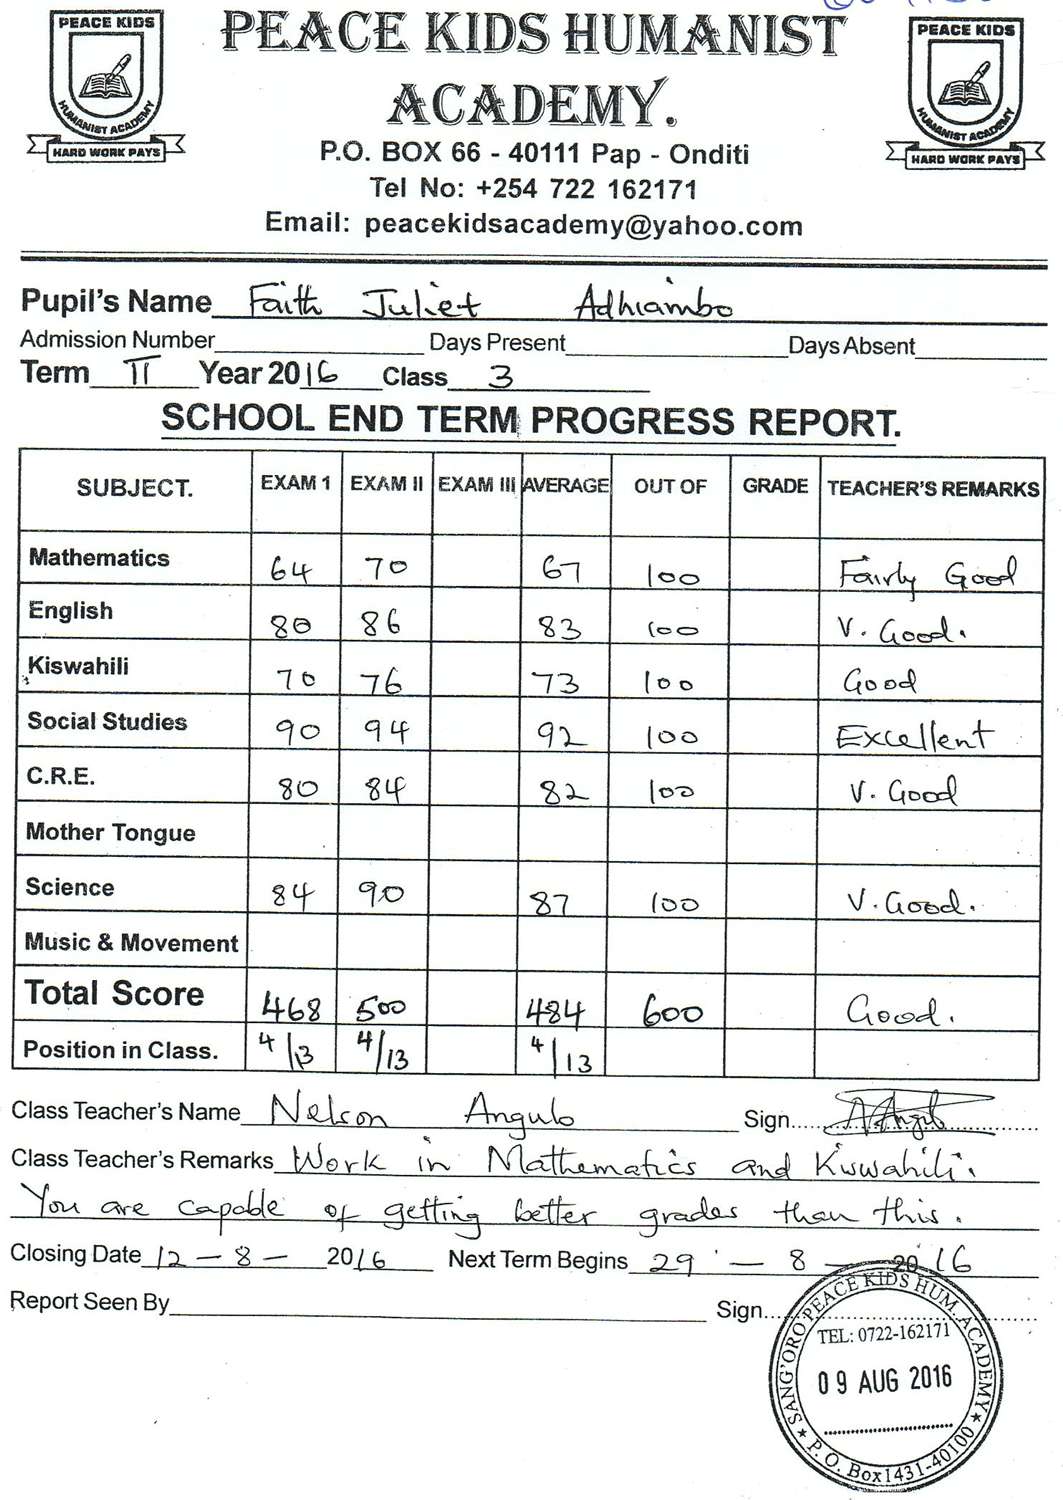 PEACE KIDS
HUMANIST ACADEMY
HARD WORK PAYS
PEACE KIDS HUMANIST
ACADEMY.
P.O. BOX 66 - 40111 Pap - Onditi
Tel No: +254 722 162171
Email: peacekidsacademy@yahoo.com
PEACE KIDS
HUMANIST ACADEMY
HARD WORK PAYS
Pupil's Name Faith Juliet Adhiambo
Admission Number Days Present Days Absent
Term II Year 2016 Class 3
SCHOOL END TERM PROGRESS REPORT.
SUBJECT. EXAM 1 EXAM II EXAM III AVERAGE OUT OF GRADE TEACHER'S REMARKS
Mathematics 64 70 67 100 Fairly Good
English 80 86 83 100 V. Good.
Kiswahili 70 76 73 100 Good
Social Studies 90 94 92 100 Excellent
C.R.E. 80 84 82 100 V. Good
Mother Tongue
Science 84 90 87 100 V. Good.
Music & Movement
Total Score 468 500 484 600 Good.
Position in Class. 4/13 4/13 4/13
Class Teacher's Name Nelson Angulo Sign.....
Class Teacher's Remarks Work in Mathematics and Kiswahili.
You are capable of getting better grades than this.
Closing Date 12 - 8 - 2016 Next Term Begins 29 - 8 - 2016
Report Seen By Sign...
SANG'ORO PEACE KIDS HUM. ACADEMY
TEL: 0722-162171
09 AUG 2016
P. O. Box 1431-40100